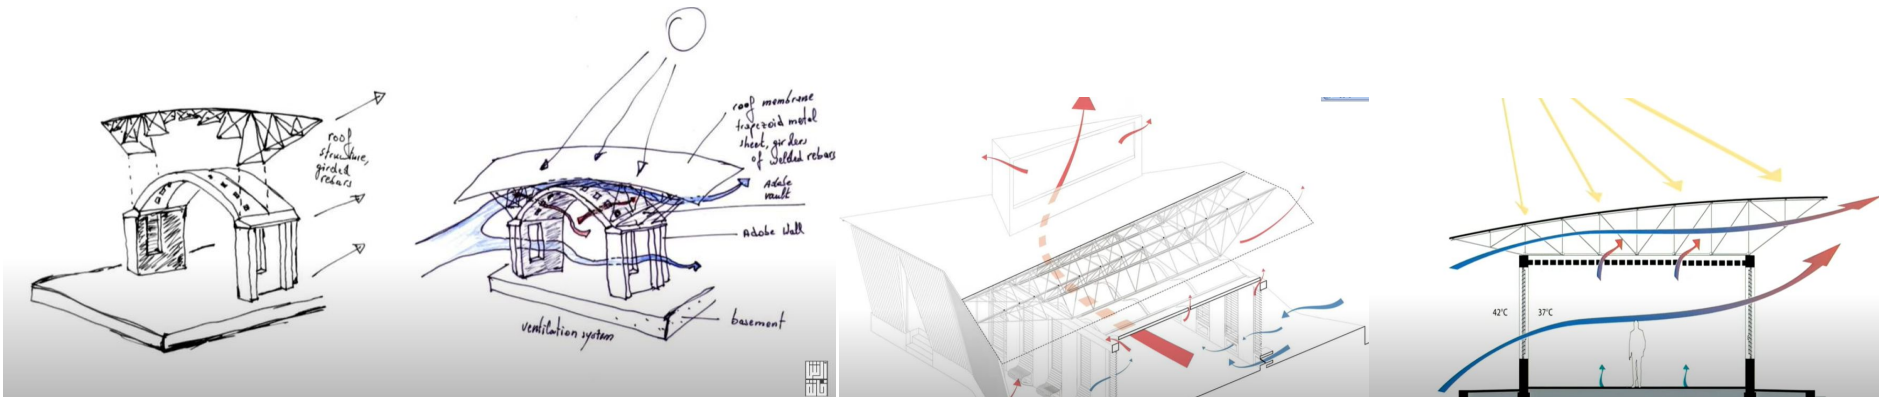 roof
structure,
girded
rebars
roof membrane
trapezoid metal
sheet, girders
of welded rebars
Adobe
vault
Adobe Wall
basement
ventilation system
42°C
37°C